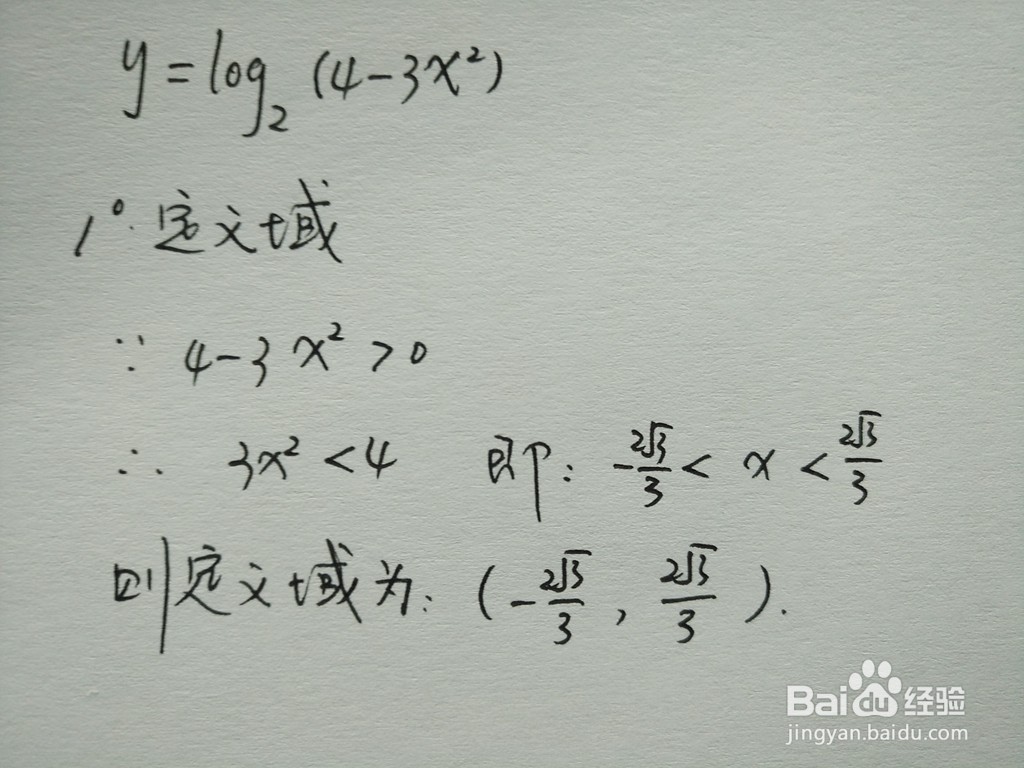 y=log₂(4-3x²)
1°.定义域
∵ 4-3x²>0
∴ 3x²<4 即: -2√3/3< x <2√3/3
则定义域为: (-2√3/3, 2√3/3).
Baidu经验
jingyan.baidu.com